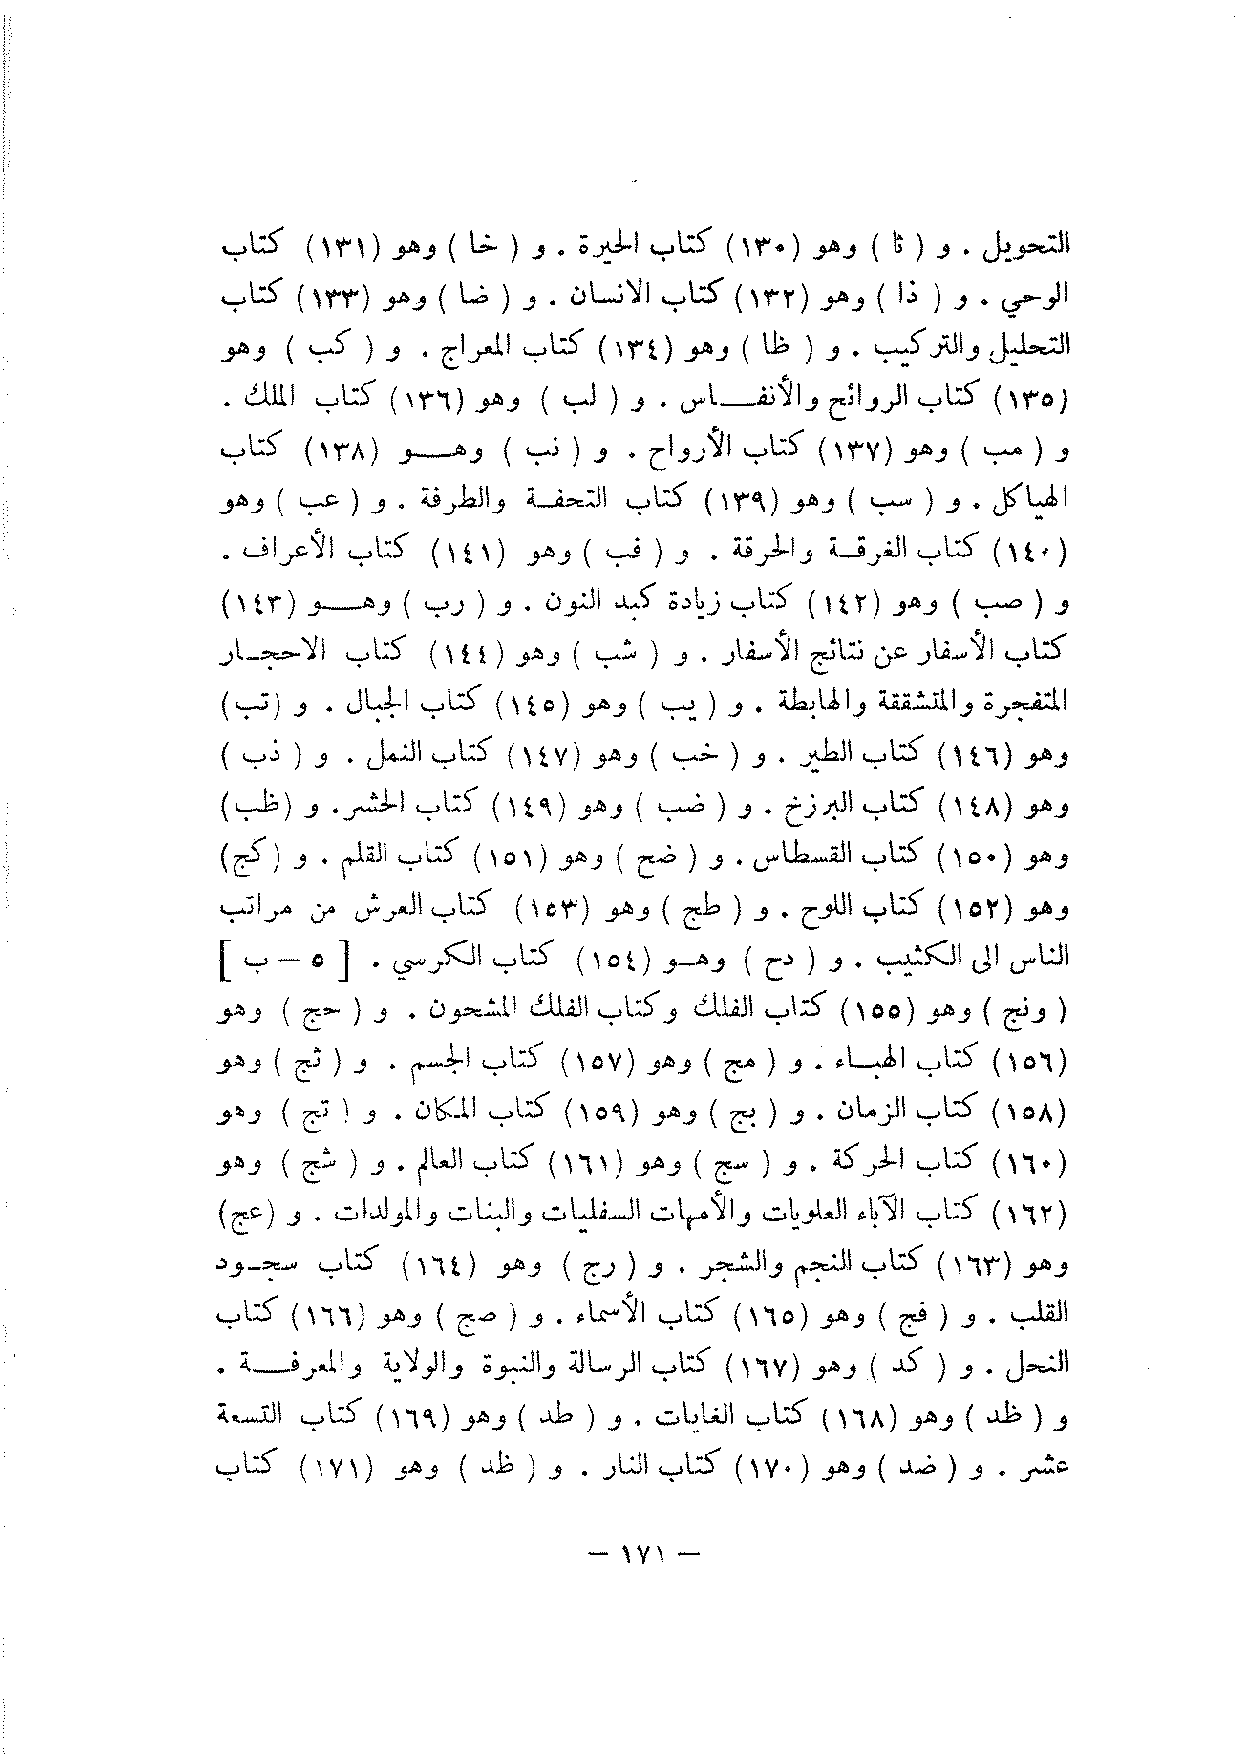 التحويل . و ( ثا ) وهو (١٣٠) كتاب الحيرة . و ( خا ) وهو (١٣١) كتاب
الوحي . و ( ذا ) وهو (١٣٢) كتاب الانسان . و ( ضا ) وهو (١٣٣) كتاب
التحليل والتركيب . و ( ظا ) وهو (١٣٤) كتاب المعراج . و ( كب ) وهو
(١٣٥) كتاب الروائح والأنفـــاس . و ( لب ) وهو (١٣٦) كتاب الملك .
و ( مب ) وهو (١٣٧) كتاب الأرواح . و ( نب ) وهـــو (١٣٨) كتاب
الهياكل . و ( سب ) وهو (١٣٩) كتاب التحفـة والطرفة . و ( عب ) وهو
(١٤٠) كتاب الغرقـة والحرقة . و ( فب ) وهو (١٤١) كتاب الأعراف .
و ( صب ) وهو (١٤٢) كتاب زيادة كبد النون . و ( رب ) وهـــو (١٤٣)
كتاب الأسفار عن نتائج الأسفار . و ( شب ) وهو (١٤٤) كتاب الاحجـار
المتفجرة والمتشققة والهابطة . و ( يب ) وهو (١٤٥) كتاب الجبال . و (تب)
وهو (١٤٦) كتاب الطير . و ( خب ) وهو (١٤٧) كتاب النمل . و ( ذب )
وهو (١٤٨) كتاب البرزخ . و ( ضب ) وهو (١٤٩) كتاب الحشر. و (ظب)
وهو (١٥٠) كتاب القسطاس . و ( ضح ) وهو (١٥١) كتاب القلم . و (كج)
وهو (١٥٢) كتاب اللوح . و ( طج ) وهو (١٥٣) كتاب العرش من مراتب
الناس الى الكثيب . و ( دح ) وهـو (١٥٤) كتاب الكرسي . [ ٥ – ب ]
( ونج ) وهو (١٥٥) كتاب الفلك وكتاب الفلك المشحون . و ( حج ) وهو
(١٥٦) كتاب الهبـاء . و ( مج ) وهو (١٥٧) كتاب الجسم . و ( ثج ) وهو
(١٥٨) كتاب الزمان . و ( بج ) وهو (١٥٩) كتاب المكان . و ( تج ) وهو
(١٦٠) كتاب الحركة . و ( سج ) وهو (١٦١) كتاب العالم . و ( شج ) وهو
(١٦٢) كتاب الآباء العلويات والأمهات السفليات والبنات والمولدات . و (عج)
وهو (١٦٣) كتاب النجم والشجر . و ( رج ) وهو (١٦٤) كتاب سجـود
القلب . و ( فج ) وهو (١٦٥) كتاب الأسماء . و ( صج ) وهو (١٦٦) كتاب
النحل . و ( كد ) وهو (١٦٧) كتاب الرسالة والنبوة والولاية والمعرفـــة .
و ( ظد ) وهو (١٦٨) كتاب الغايات . و ( طد ) وهو (١٦٩) كتاب التسعة
عشر . و ( ضد ) وهو (١٧٠) كتاب النار . و ( ظد ) وهو (١٧١) كتاب
– ١٧١ –